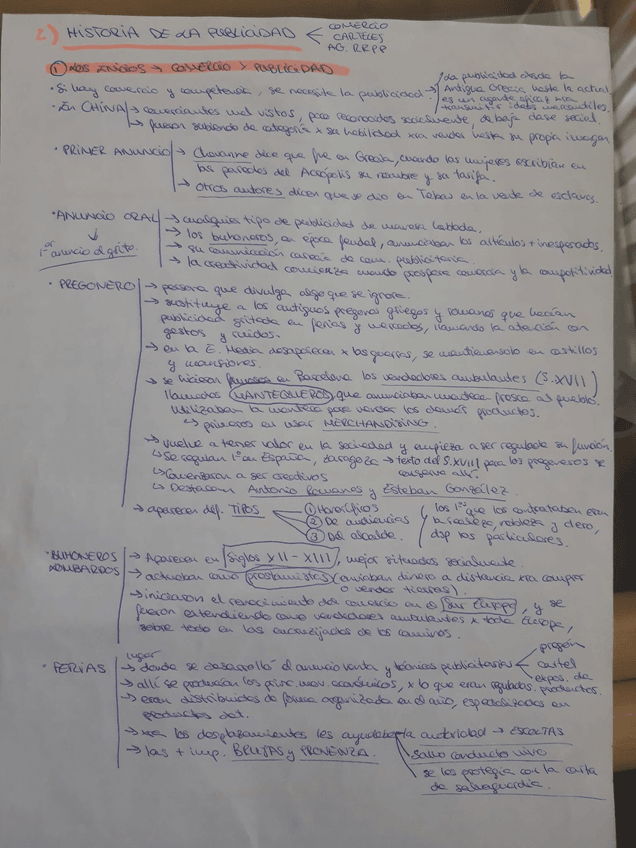 2) HISTORIA DE LA PUBLICIDAD
COMERCIO
CARTELES
AG. RRPP
① LOS INICIOS → COMERCIO > PUBLICIDAD
· Si hay comercio y competencia, se necesita la publicidad → La publicidad desde la
Antigua Grecia hasta la actual
es un agente eficaz xra
transmitir datos mercantiles.
· En CHINA → comerciantes mal vistos, poco reconocidos socialmente, de baja clase social.
→ fueron subiendo de categoría x su habilidad xra vender hasta su propia imagen
· PRIMER ANUNCIO → dice que fue en Grecia, cuando las mujeres escribían en
las paredes del Acrópolis su nombre y su tarifa.
→ Otros autores dicen que se dio en Tebas en la venta de esclavos.
· ANUNCIO ORAL → cualquier tipo de publicidad de manera hablada.
1er anuncio al grito.
→ los buhoneros, en época feudal, anunciaban los artículos + inesperados.
→ su comunicación carecía de com. publicitaria.
→ la creatividad comienza cuando prospera comercio y la competitividad
· PREGONERO → persona que divulga algo que se ignora.
→ sustituye a los antiguos pregones griegos y romanos que hacían
publicidad gritada en ferias y mercados, llamando la atención con
gestos y ruidos.
→ en la E. Media desaparecen x las guerras, se mantienen solo en castillos
y mansiones.
→ se hicieron famosos en Barcelona los vendedores ambulantes (S. XVII)
llamados MANTEQUEROS que anunciaban manteca fresca al pueblo.
Utilizaban la manteca para vender los demás productos.
↳ primeros en usar MERCHANDISING.
→ vuelve a tener valor en la sociedad y empieza a ser regulada su función.
↳ Se regulan 1º en España, Zaragoza → texto del S. XVIII para los pregoneros se
conserva allí.
↳ Comenzaron a ser creativos
↳ Destacan Antonio Romanos y Esteban González.
→ aparecen dif. TIPOS
① Honoríficos
② De audiencias
③ Del alcalde.
los 1os que los contrataban eran
la realeza, nobleza y clero,
dsp los particulares.
· BUHONEROS LOMBARDOS → Aparecen en Siglos XII - XIII, mejor situados socialmente.
→ actuaban como prestamistas (enviaban dinero a distancia xra comprar
o vender tierras).
→ iniciaron el renacimiento del comercio en el Sur Europa, y se
fueron extendiendo como vendedores ambulantes x toda Europa,
sobre todo en las encrucijadas de los caminos.
· FERIAS → lugar donde se desarrolló el anuncio venta y técnicas publicitarias
pregón
cartel
expos. de
productos.
→ allí se producían los princ. mov. económicos, x lo que eran reguladas.
→ eran distribuidas de forma organizada en el año, especializadas en
productos det.
→ xra los desplazamientos les ayudaba la autoridad → ESCOLTAS
Salvo conducto vivo
se les protegía con la carta
de salvaguardia.
→ las + imp. BRUJAS y PROVENZA.